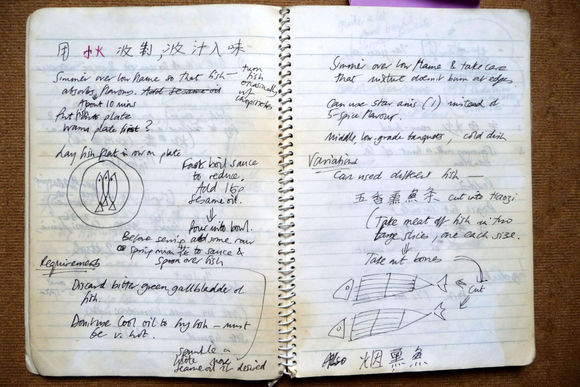 用 小火
Simmer over low flame so that fish —
absorbs flavours. Add sesame oil
turn
fish
occasionally
w/
chopsticks
About 10 mins
Put fish on plate
warm plate first?
Lay fish flat in row on plate
Fast boil sauce
to reduce,
Add 1 tsp
sesame oil.
Pour into bowl.
Before serving add some raw
spring onion to sauce &
Spoon over fish
Requirements
Discard bitter green gallbladder of
fish.
Don't use cool oil to fry fish — must
be v. hot.
sprinkle a
more
sesame oil if desired
Simmer over low flame & take care
that mixture doesn't burn at edges
Can use star anis (1) instead of
5-spice flavour.
Middle, low-grade banquets, cold dish
Variations
Can used different fish —
五香熏魚 cut into
(Take meat off fish in two
large slices, one each side.
Take out bones
Cut
Also 烟熏魚